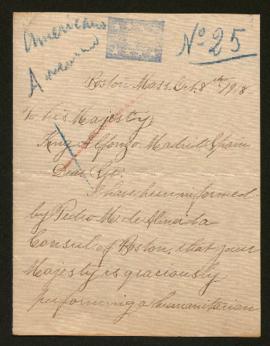 Americano
Nº 25
Boston Mass. Oct. 8th 1918
To His Majesty,
King Alfonso Madrid Spain
Dear Sir:
I have been informed
by Pedro M. de
Consul of Boston, that your
Majesty is graciously
performing a humanitarian